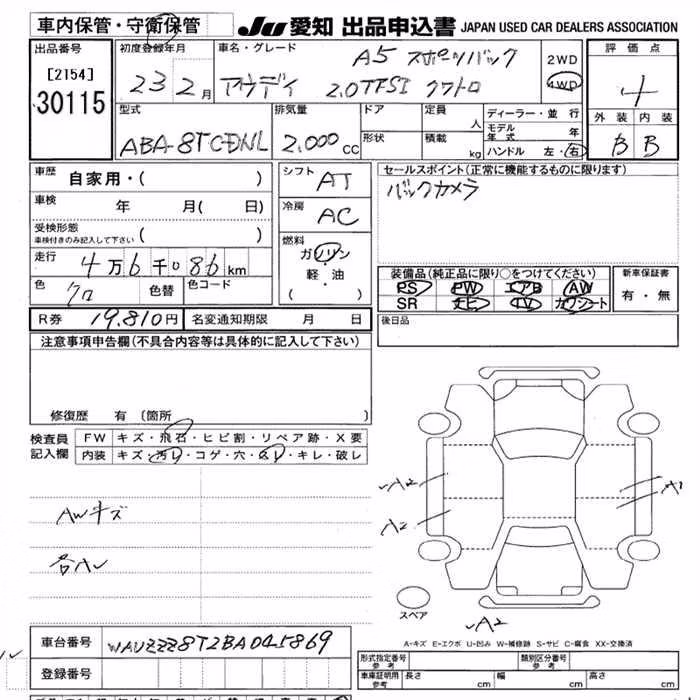 車内保管・守衛保管
JU 愛知 出品申込書 JAPAN USED CAR DEALERS ASSOCIATION
出品番号 初度登録年月 車名・グレード 評価点
[2154]
30115
23 2月
A5 スポーツバック
アウディ 2.0TFSI クワトロ
2WD
4WD
4
型式 排気量 ドア 定員 人 ディーラー・並行 外装 内装
ABA-8TCDNL 2,000cc
形状 積載 kg モデル年式 年
ハンドル 左・右
B B
車歴 自家用・( )
シフト AT
セールスポイント(正常に機能するものに限ります)
バックカメラ
車検 年 月( 日)
冷房 AC
受検形態
車検付きのみ記入して下さい ( )
燃料 ガソリン
軽・油
( ・ )
走行 4万6千086km
装備品(純正品に限り○をつけてください) 新車保証書
PS PW エアB AW
SR ナビ TV カワシート
有・無
色 クロ 色替 色コード
R券 19,810円 名変通知期限 月 日
後日品
注意事項申告欄(不具合内容等は具体的に記入して下さい)
修復歴 有 (箇所 )
検査員
記入欄
FW キズ・飛石・ヒビ割・リペア跡・X要
内装 キズ・汚レ・コゲ・穴・スレ・キレ・破レ
A2
A2
A1
AWキズ
スペア
A2
A-キズ E-エクボ U-凹み W-補修跡 S-サビ C-腐食 XX-交換済
車台番号 WAUZZZ8T2BA045869
登録番号
形式指定番号 参考 類別区分番号 参考
車庫証明用 参考 長さ cm 幅 cm 高さ cm